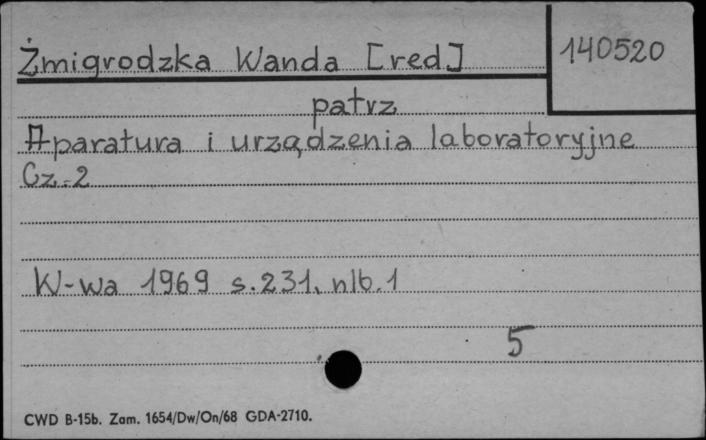 Żmigrodzka Wanda [red]
140520
patrz
Aparatura i urządzenia laboratoryjne
Cz. 2
W-wa 1969 s. 231, nlb. 1
5
CWD B-15b. Zam. 1654/Dw/On/68 GDA-2710.